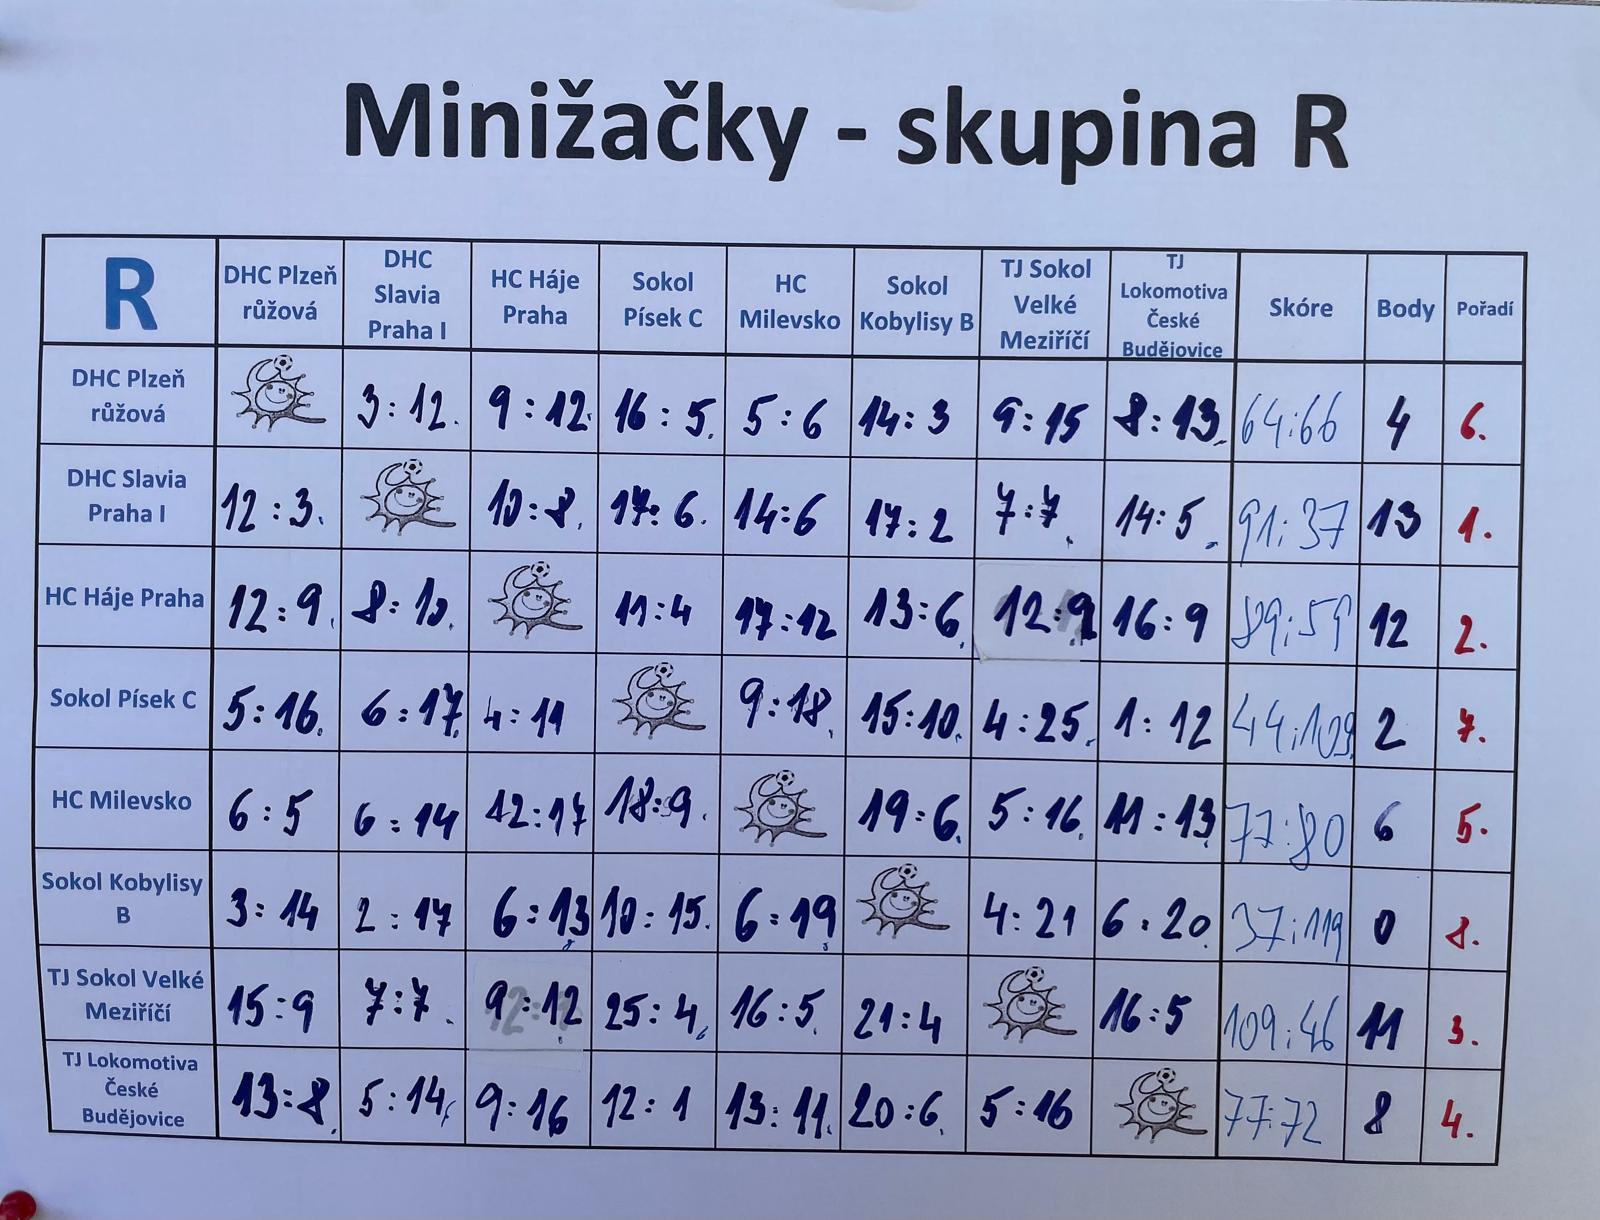 Minižačky - skupina R
R DHC Plzeň růžová DHC Slavia Praha I HC Háje Praha Sokol Písek C HC Milevsko Sokol Kobylisy B TJ Sokol Velké Meziříčí TJ Lokomotiva České Budějovice Skóre Body Pořadí
DHC Plzeň růžová 3:12. 9:12. 16:5. 5:6 14:3 9:15 8:13. 64:66 4 6.
DHC Slavia Praha I 12:3. 10:8. 17:6. 14:6 17:2 7:7. 14:5. 91:37 13 1.
HC Háje Praha 12:9. 8:10. 11:4 17:12 13:6. 12:9 16:9 89:59 12 2.
Sokol Písek C 5:16. 6:17. 4:11 9:18. 15:10. 4:25. 1:12 44:109 2 7.
HC Milevsko 6:5 6:14 12:17 18:9. 19:6. 5:16. 11:13. 77:80 6 5.
Sokol Kobylisy B 3:14 2:17 6:13 10:15. 6:19 4:21 6:20. 37:119 0 8.
TJ Sokol Velké Meziříčí 15:9 7:7. 9:12 25:4. 16:5. 21:4 16:5 109:46 11 3.
TJ Lokomotiva České Budějovice 13:8. 5:14. 9:16 12:1 13:11. 20:6. 5:16 77:72 8 4.